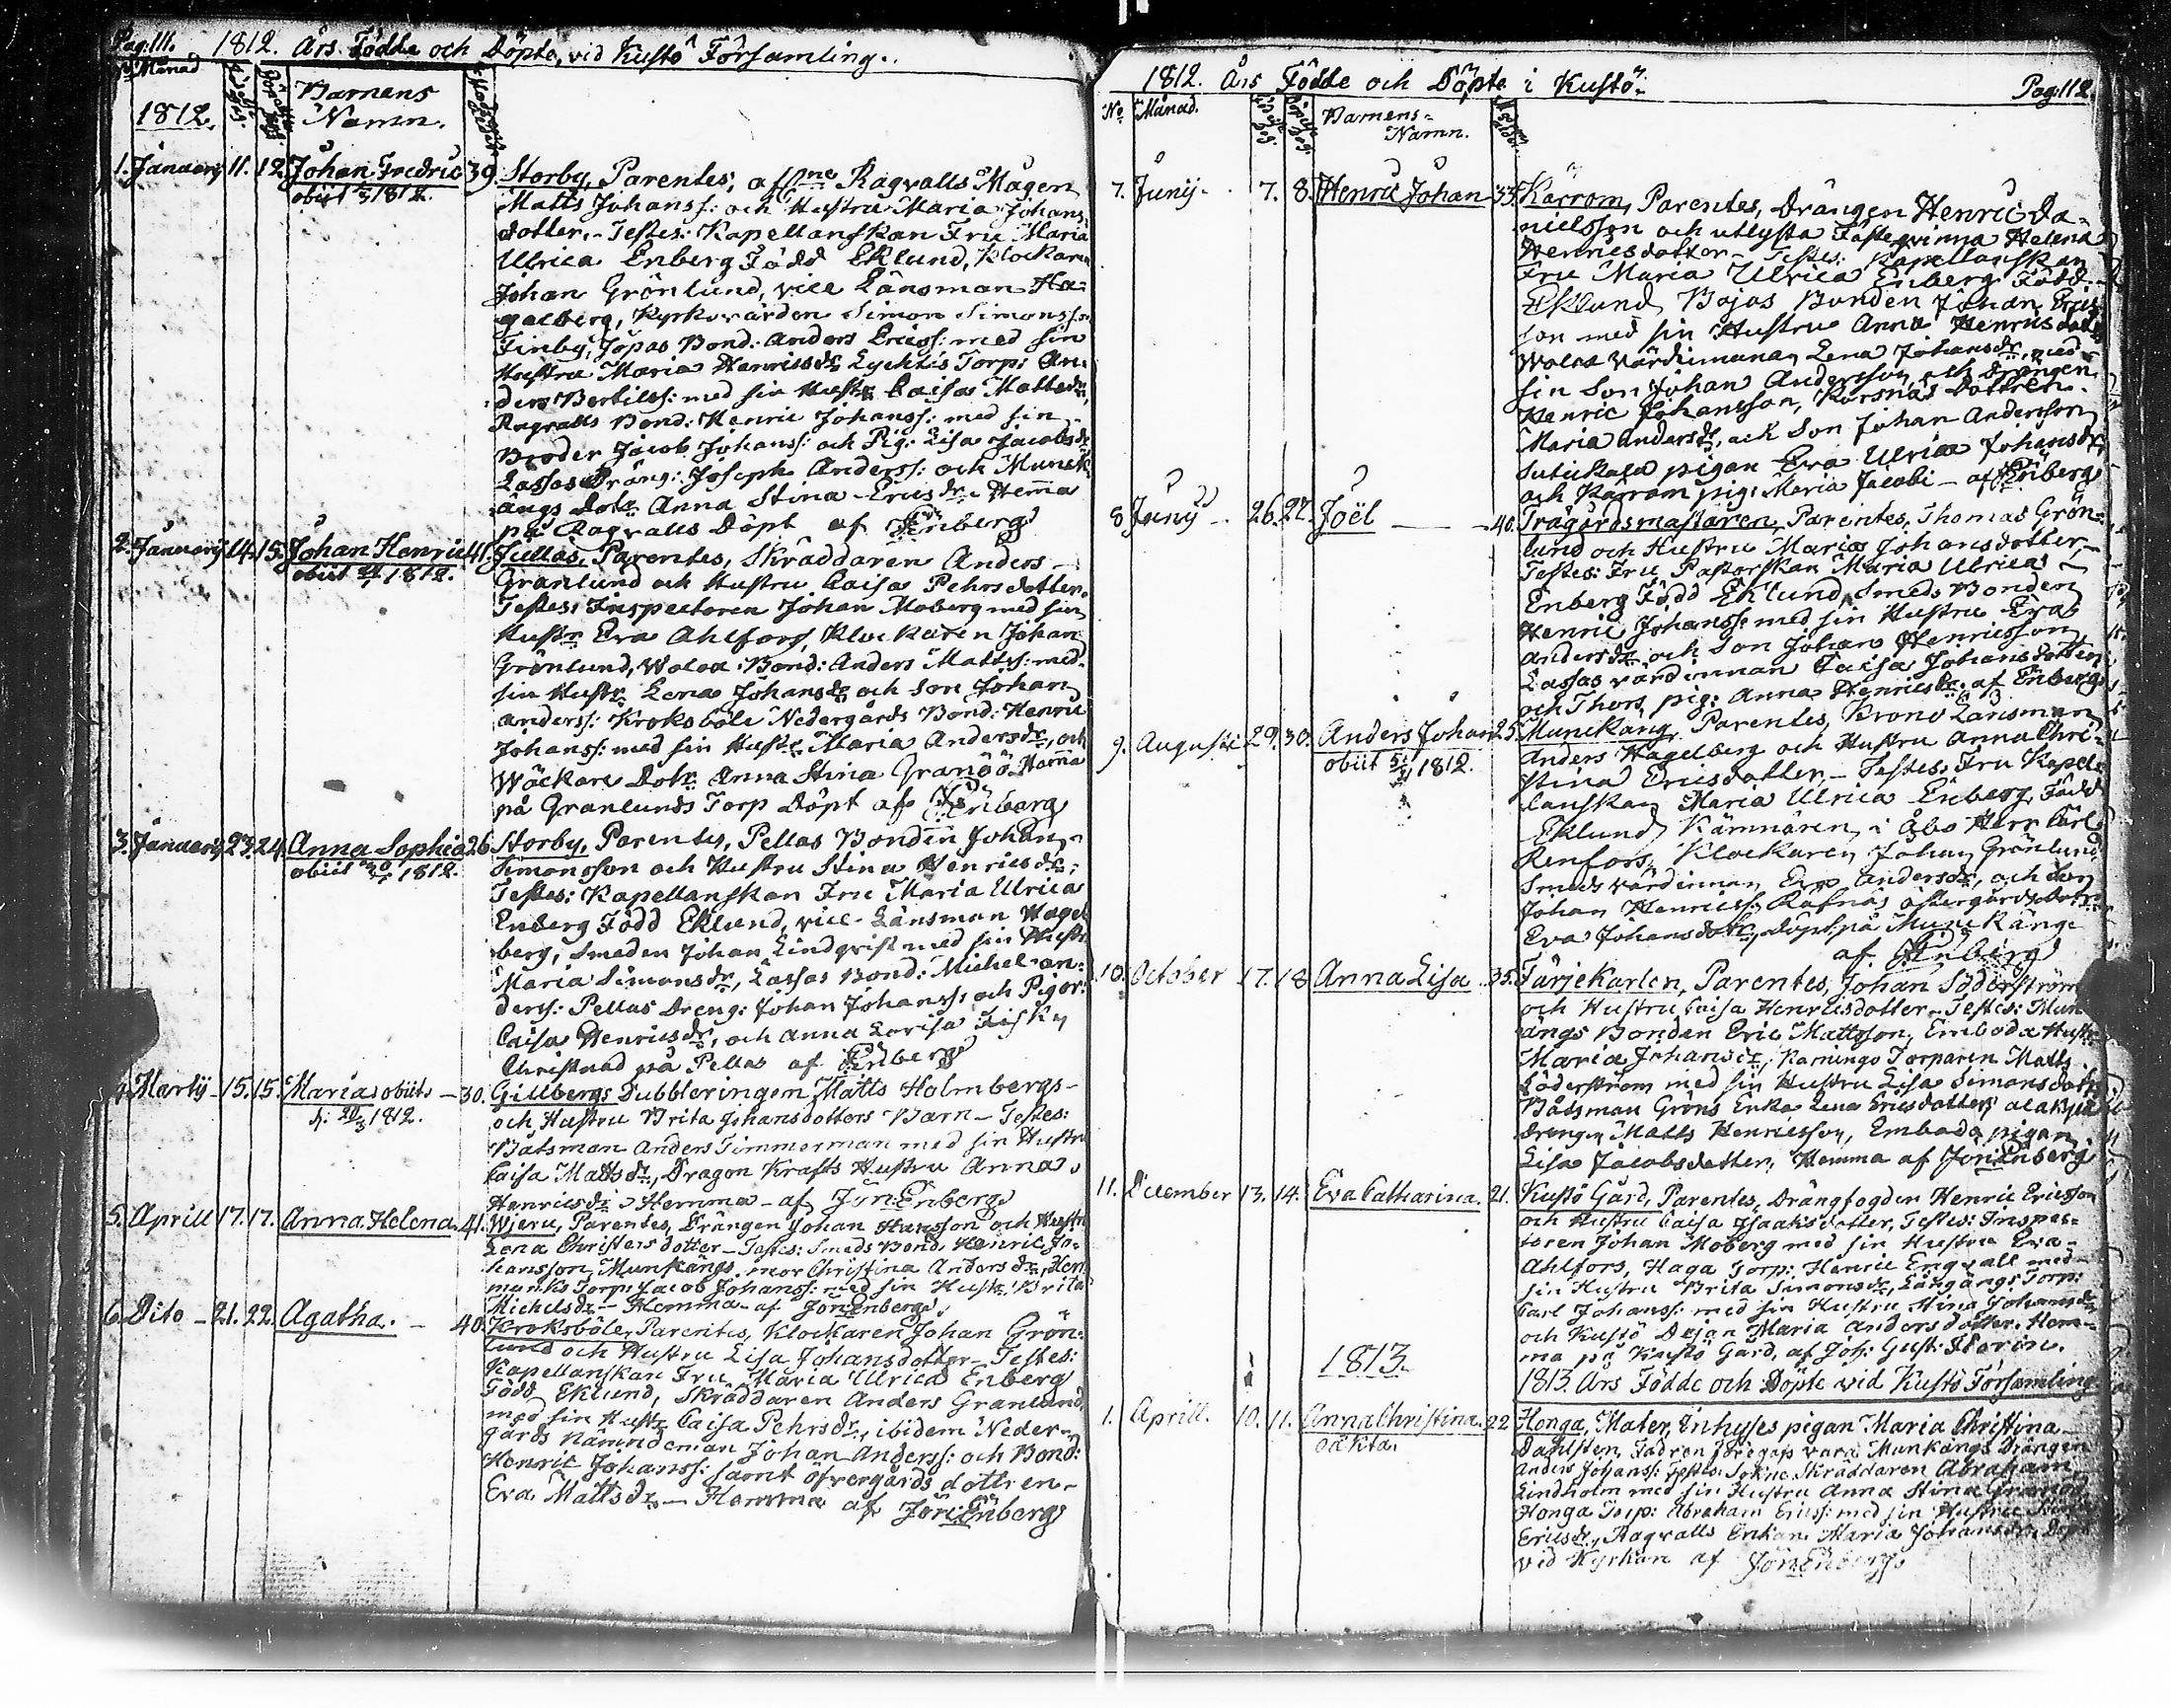 Pag: 111. 1812. Års Födde och Döpte, vid Kustö Församling.
Månad 1812. Barnens Namn.
1. Januarij 11. 12. Johan Fredric 39. Storby, Parentes, Ragvalls Mågen
obiit 1812. Matts Johanss: och Hustru Maria Johans
dotter, - Testes: Kapellanskan Fru Maria
Ulrica Enberg Född Eklund, Klockaren
Johan Grönlund, vice Länsman Ha-
gelberg, Kyrkovärden Simon Simonsson
Finby, Jopas Bond: Anders Ericss: med sin
Hustru Maria Henricsdr Torp: An-
ders Bertilss: med sin Hustr Caisa Mattsdr,
Ragvalls Bond: Henric Johanss: med sin
Broder Jacob Johanss: och Pig: Lisa Jacobsdr
Lassas Dräng: Joseph Anderss: och Munck
ängs Dotr Anna Stina Ericsdr Hemma
på Ragvalls Döpt af Enberg
2. Januarij 14. 15. Johan Henric 41. Jullas, Parentes, Skräddaren Anders
obiit 1812. Granlund och Hustru Caisa Pehrsdotter.
Testes: Inspectoren Johan Moberg med sin
Hustr Eva Ahlfors, Klockaren Johan
Grönlund, Bond: Anders Mattss: med
sin Hustr Lena Johansdr och Son Johan
Anderss: Kroksböle Nedergårds Bond: Henric
Johanss: med sin Hustr Maria Andersdr, och
Dotr Anna Stina Granöö Hemma
på Granlunds Torp Döpt af Enberg
3. Januarij 23. 24. Anna Sophia 26. Storby, Parentes, Pellas Bonden Johan
obiit 1812. Simonsson och Hustru Stina Henricsdr;
Testes: Kapellanskan Fru Maria Ulrica
Enberg Född Eklund, vice Länsman Hagel
berg, Smeden Johan Lindqvist med sin Hustr
Maria Simonsdr, Lassas Bond: Michel An-
derss: Pellas Dreng: Johan Johanss: och Pigor:
Caisa Henricsdr, och Anna Lovisa
Christnad på Pellas af Enberg
4. Martij 15. 15. Maria obiit 30. Gillbergs Dubbleringen Matts Holmbergs
d: 1812. och Hustru Brita Johansdotters Barn - Testes:
Båtsman Anders Timmerman med sin Hustru
Caisa Mattsdr, Dragon Krafts Hustru Anna
Henricsdr Hemma - af Jon Enberg
5. Aprill 17. 17. Anna Helena 41. Wjeru, Parentes, Drängen Johan Hansson och Hustru
Lena Christersdotter - Testes: Smeds Bond: Henric Jo-
hansson, Munkängs mor Christina Andersdr,
Torp: Jacob Johanss: med sin Hustr Brita
Michelsdr - Hemma - af Jon Enberg
6. Dito - 21. 22. Agatha. - 40. Kroksböle, Parentes, Klockaren Johan Grön-
lund och Hustru Lisa Johansdotter - Testes:
Kapellanskan Fru Maria Ulrica Enberg
Född Eklund, Skräddaren Anders Granlund
med sin Hustr Caisa Pehrsdr, ibidem Neder-
gårds Nämndeman Johan Anderss: och Bond:
Henric Johanss: samt öfvergårds dottren
Eva Mattsdr - Hemma af Jon: Enberg
1812. Års Födde och Döpte i Kustö. Pag: 112.
No Månad. Barnens Namn.
7. Junij. 7. 8. Henric Johan 33. Kärrom, Parentes, Drängen Henric Da-
nielsson och utlysta Fästeqvinna Helena
Henricsdotter - Testes: Kapellanskan
Fru Maria Ulrica Enberg Född
Eklund Bojas Bonden Johan Erics
son med sin Hustru Anna Henricsdotr
Värdinnan Lena Johansdr, med
sin Son Johan Andersson, och Drängen
Henric Johansson, Korsnäs Dottren
Maria Andersdr, och Son Johan Andersson
pigan Eva Ulrica Johansdr
och Kärrom pig: Maria Jacobi - af Enberg
8 Junij - 26. 27. Joël - 40. Trägårdsmästaren, Parentes, Thomas Grön-
lund och Hustru Maria Johansdotter,
Testes: Fru Pastorskan Maria Ulrica
Enberg Född Eklund, Smeds Bonden
Henric Johanss: med sin Hustru Eva
Andersdr och Son Johan Henricsson
Lassas värdinnan Caisa Johansdotter
och Thors pig: Anna Henricsdr. af Enberg
9. Augusti 29. 30. Anders Johan 25. Munckäng, Parentes, Krono Länsman
obiit 1812. Anders Hagelberg och Hustru Anna Chri-
stina Ericsdotter - Testes: Fru Kapel-
lanskan Maria Ulrica Enberg Född
Eklund Kämnären i Åbo Herr Carl
Renfors, Klockaren Johan Grönlund
Smeds värdinnan Eva Andersdr, och Son
Johan Henricss: Rafnäs östergårds Dotr
Eva Johansdotr, döpt på Munckäng
af Enberg
10. October 17. 18 Anna Lisa 35. Färjekarlen, Parentes, Johan Söderström
och Hustru Caisa Henricsdotter - Testes: Munk
ängs Bonden Eric Mattsson, Emboda Hustr
Maria Johansdr, Torparen Matts
Söderström med sin Hustru Lisa Simonsdotr
Båtsman Gröns Enka Lena Ericsdotter,
drengen Matts Henricsson, Emboda pigan
Lisa Jacobsdotter, Hemma af Jon: Enberg
11. December 13. 14. Eva Catharina 21. Kustö Gård, Parentes, Drängfogden Henric Ericsson
och Hustru Caisa Isaaksdotter, Testes: Inspec-
toren Johan Moberg med sin Hustru Eva
Ahlfors, Haga Torp: Henric Engvall med
sin Hustru Brita Simonsdr, Långängs Torp:
Carl Johanss: med sin Hustru Stina Johansdr
och Kustö Dejan Maria Andersdotter. Hem-
ma på Kustö Gård, af Joh: Gust: Florin.
1813. 1813. Års Födde och Döpte vid Kustö Församling
1. Aprill. 10. 11. Anna Christina 22 Honga, Mater, Inhyses pigan Maria Christina
oäkta. Dahlsten, Fadren föregafs vara Munkängs Drängen
Anders Johanss: Testes: Sokne Skräddaren Abraham
Lindholm med sin Hustru Anna Stina
Honga Torp: Abraham Ericss: med sin Hustru
Ericsdr, Ragvalls Enkan Maria Johansdr
vid Kyrkan af Jon Enberg